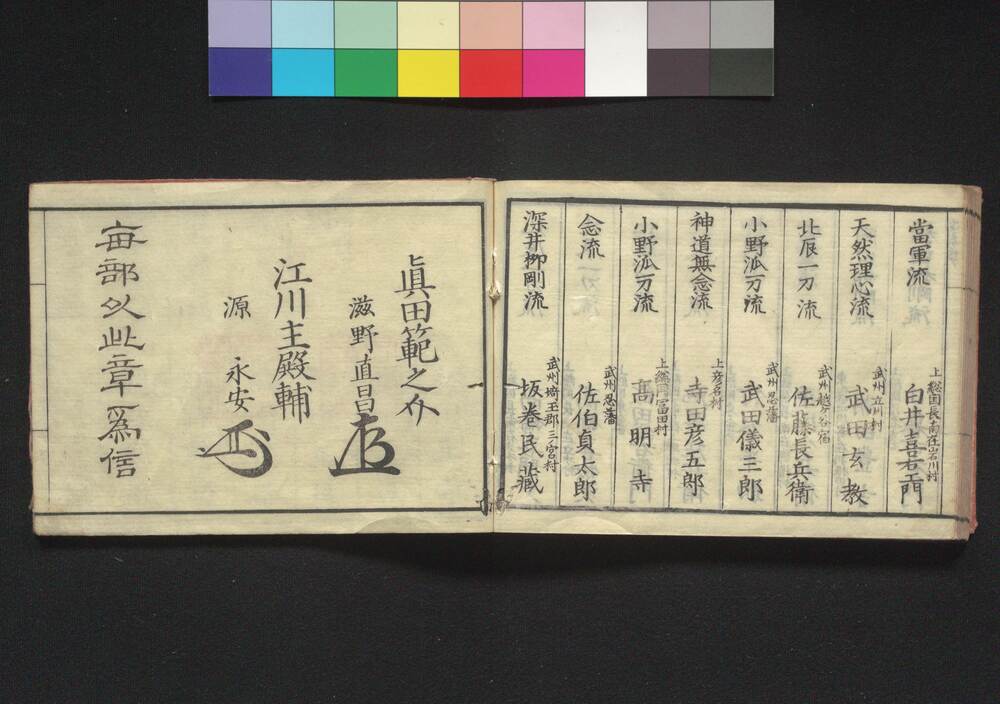 當軍流
上総国長南在岩川村
白井喜右エ門
天然理心流
武州立川村
武田玄教
北辰一刀流
武州越ケ谷宿
佐藤長兵衛
小野派一刀流
武州忍藩
武田儀三郎
神道無念流
上彦名村
寺田彦五郎
小野派一刀流
上総国冨田村
髙田明寺
念流
武州忍藩
佐伯貞太郎
深井栁剛流
武州埼玉郡三宮村
坂巻民藏
眞田範之介
滋野直昌
江川主殿輔
源永安
毎部以此章為信